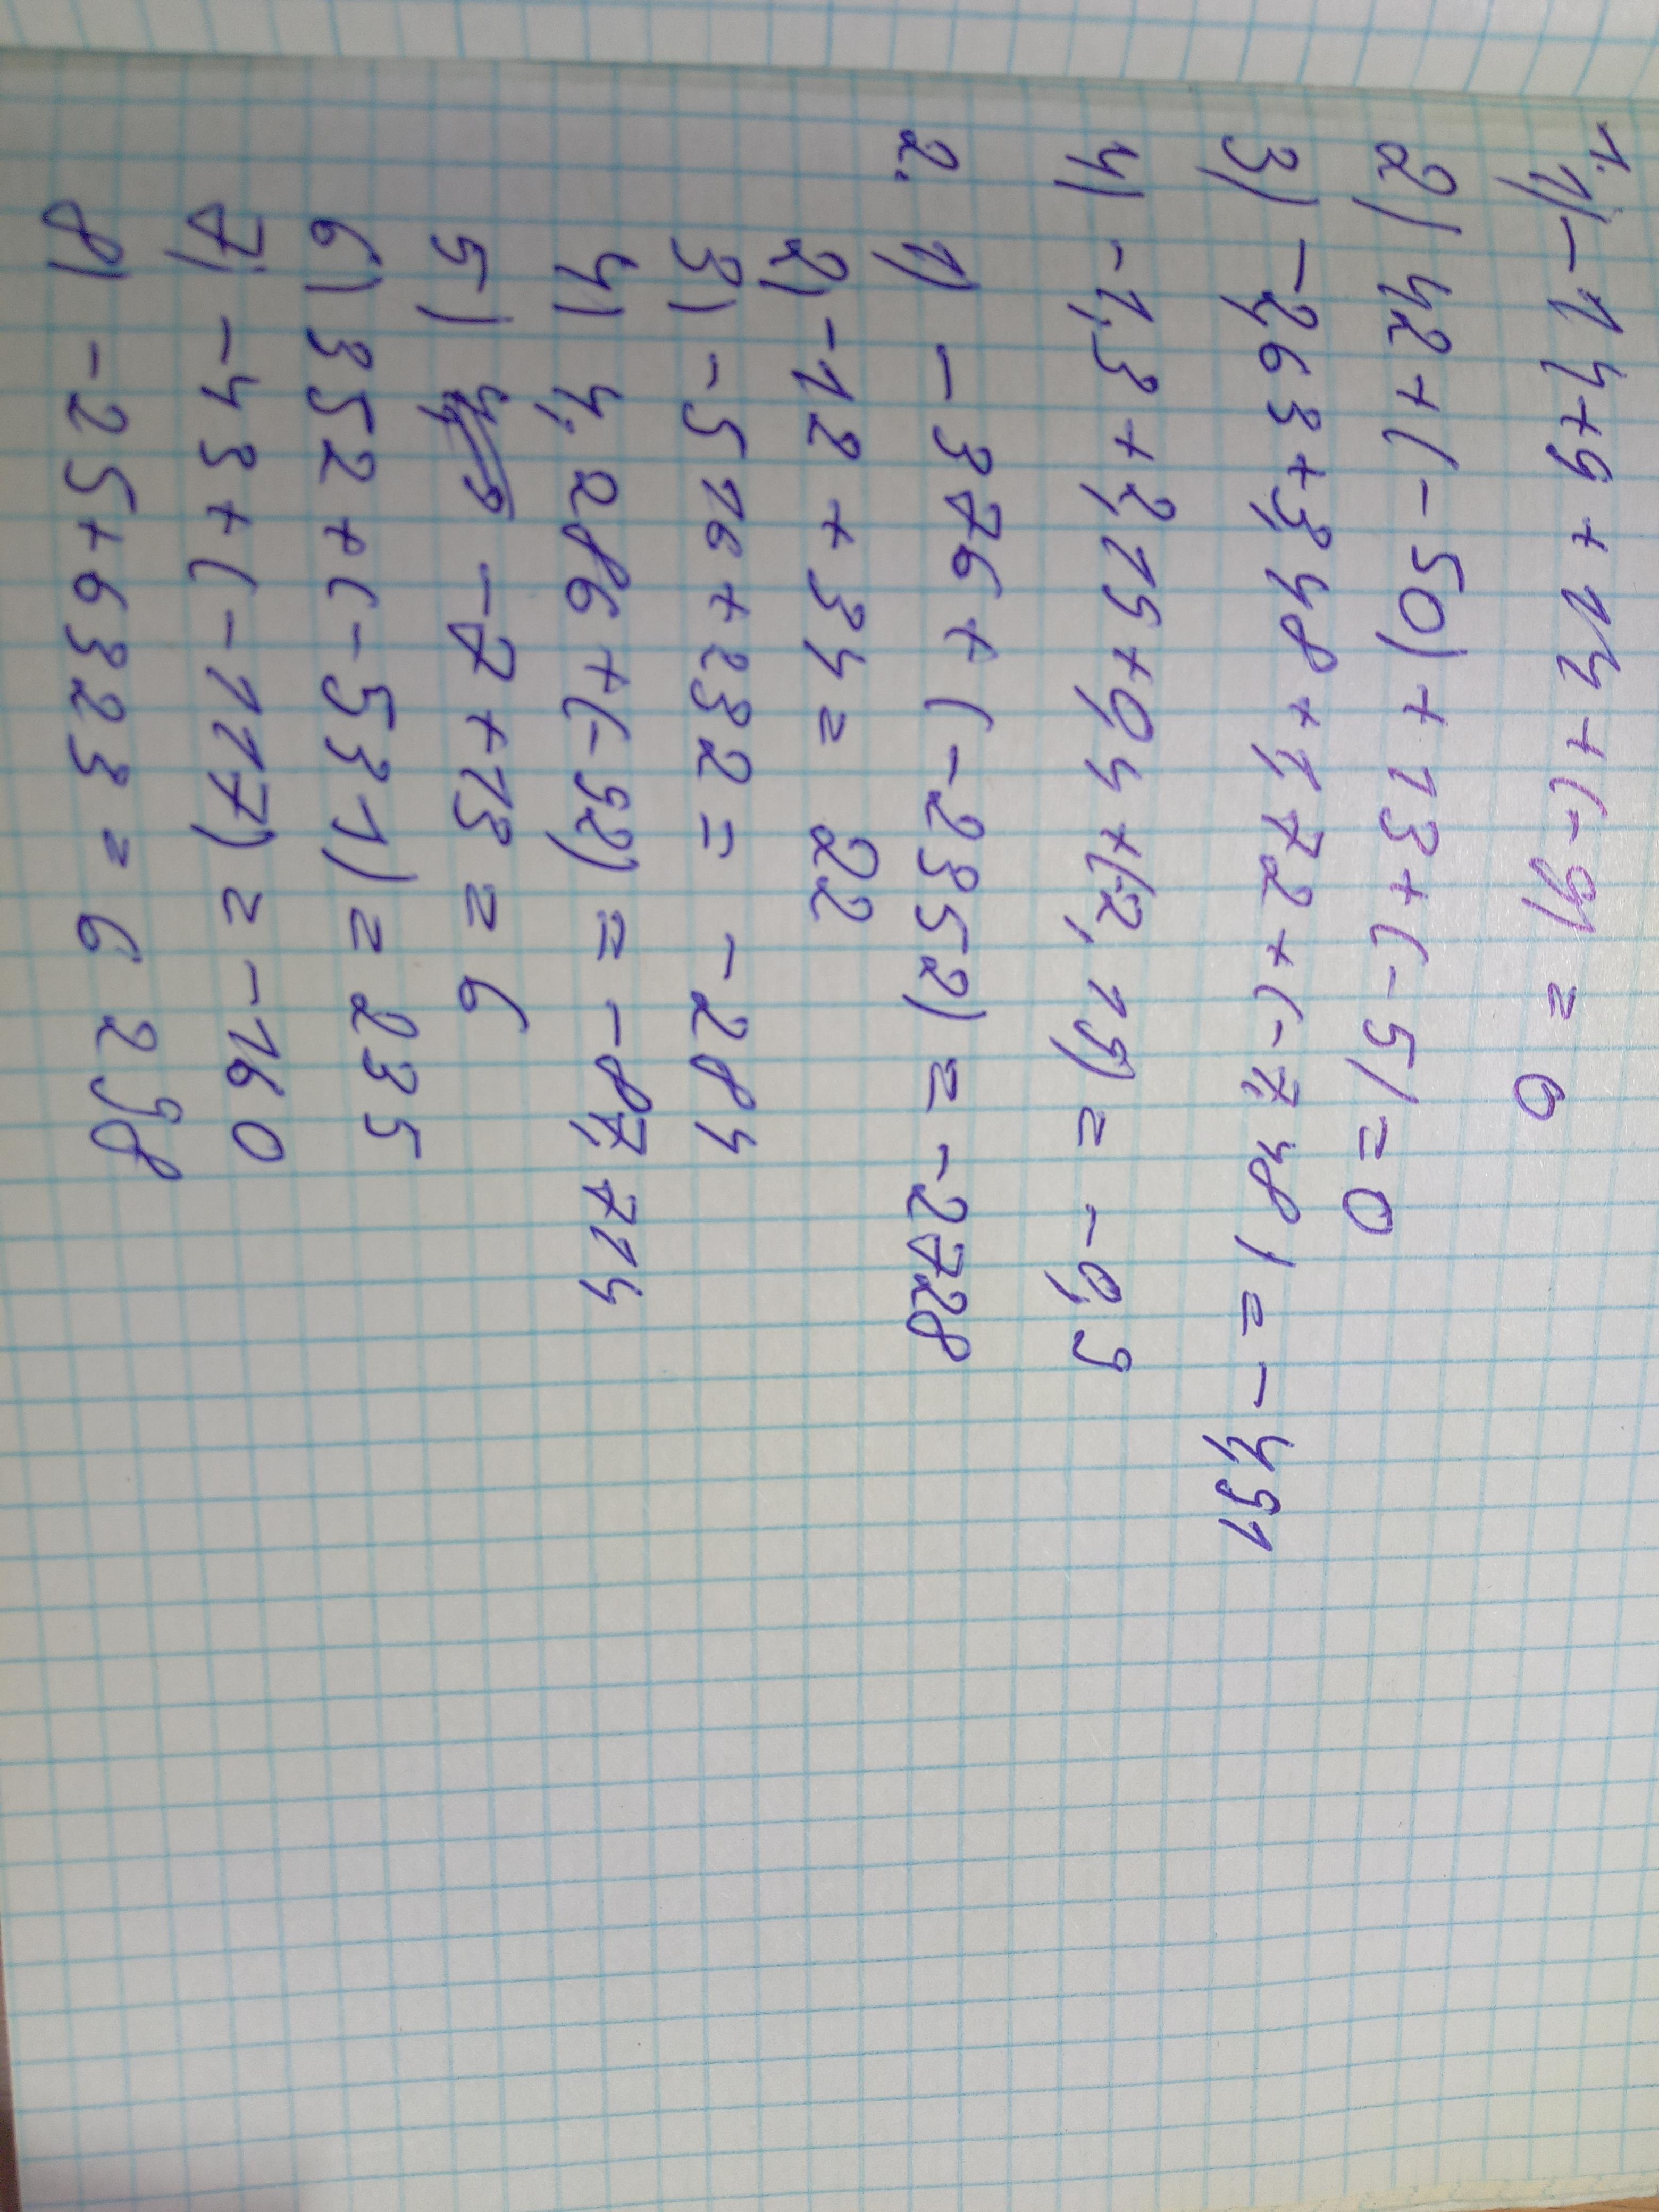 1. 1) -14+9+14+(-9) = 0
2) 42+(-50)+13+(-5)=0
3) -2,63+3,48+1,72+(-7,48) = -4,91
4) -1,3+2,19+0,4+(-2,19) = -0,9
2. 1) - 376+(-2352) = -2728
2) -12+34= 22
3) -516+232= -284
4) 4,286+(-92) = -87,714
5) -7+13 = 6
6) 352+(-531) = 235
7) -43+(-117) = -160
8) -25+6323 = 6 298